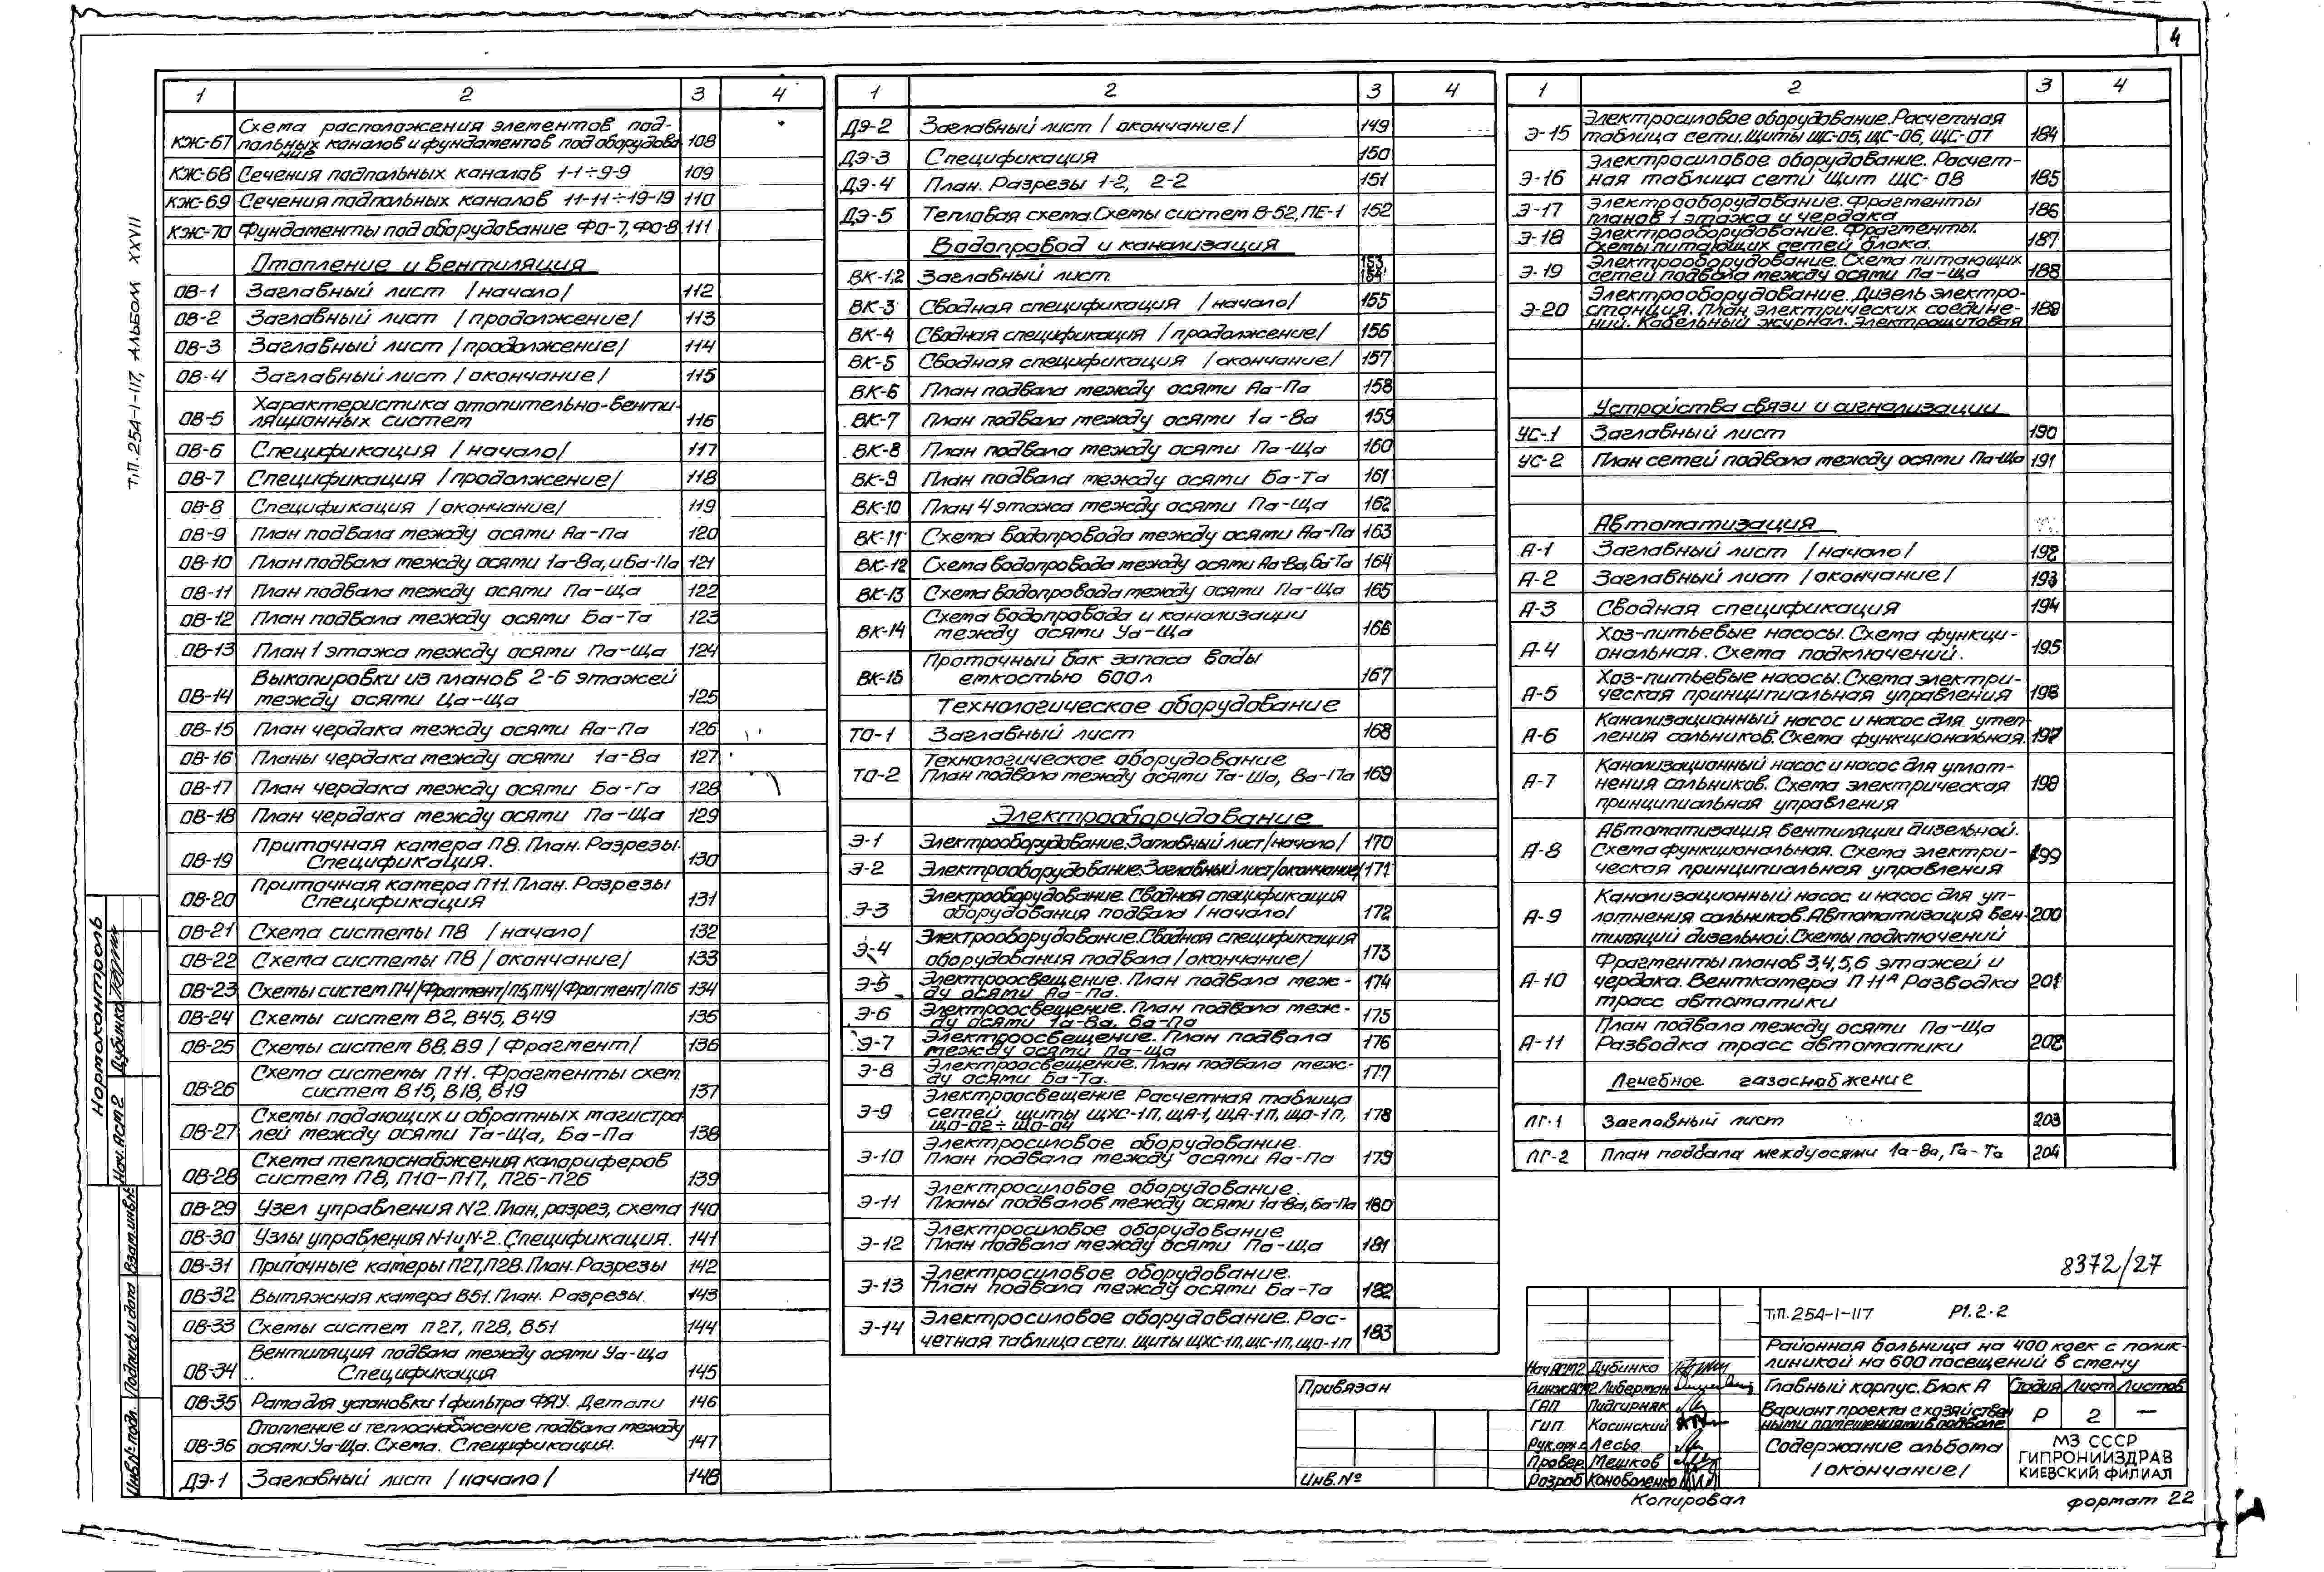 4
Т.П. 254-1-117, АЛЬБОМ XXVII
1 2 3 4
КЖ-67 Схема расположения элементов под-
польных каналов и фундаментов под оборудова
ние 108
КЖ-68 Сечения подпольных каналов 1-1÷9-9 109
КЖ-69 Сечения подпольных каналов 11-11÷19-19 110
КЖ-70 Фундаменты под оборудование ФО-7, ФО-8 111
Отопление и вентиляция
ОВ-1 Заглавный лист /начало/ 112
ОВ-2 Заглавный лист /продолжение/ 113
ОВ-3 Заглавный лист /продолжение/ 114
ОВ-4 Заглавный лист /окончание/ 115
ОВ-5 Характеристика отопительно-венти-
ляционных систем 116
ОВ-6 Спецификация /начало/ 117
ОВ-7 Спецификация /продолжение/ 118
ОВ-8 Спецификация /окончание/ 119
ОВ-9 План подвала между осями Аа-Па 120
ОВ-10 План подвала между осями 1а-8а, и Ба-Па 121
ОВ-11 План подвала между осями Па-Ща 122
ОВ-12 План подвала между осями Ба-Та 123
ОВ-13 План 1 этажа между осями Па-Ща 124
ОВ-14 Выкопировки из планов 2-6 этажей
между осями Ца-Ща 125
ОВ-15 План чердака между осями Аа-Па 126
ОВ-16 Планы чердака между осями 1а-8а 127
ОВ-17 План чердака между осями Ба-Га 128
ОВ-18 План чердака между осями Па-Ща 129
ОВ-19 Приточная камера П8. План. Разрезы.
Спецификация. 130
ОВ-20 Приточная камера П11. План. Разрезы
Спецификация 131
ОВ-21 Схема системы П8 /начало/ 132
ОВ-22 Схема системы П8 /окончание/ 133
ОВ-23 Схемы систем П4/Фрагмент/П5,П14/Фрагмент/П16 134
ОВ-24 Схемы систем В2, В45, В49 135
ОВ-25 Схемы систем В8, В9 /Фрагмент/ 136
ОВ-26 Схема системы П11. Фрагменты схем
систем В15, В18, В19 137
ОВ-27 Схемы подающих и обратных магистра
лей между осями Та-Ща, Ба-Па 138
ОВ-28 Схема теплоснабжения калориферов
систем П8, П10-П17, П26-П26 139
ОВ-29 Узел управления N2. План, разрез, схема 140
ОВ-30 Узлы управления N-1 и N-2. Спецификация. 141
ОВ-31 Приточные камеры П27, П28. План. Разрезы 142
ОВ-32 Вытяжная камера В51. План. Разрезы. 143
ОВ-33 Схемы систем П27, П28, В51 144
ОВ-34 Вентиляция подвала между осями Уа-Ща
Спецификация 145
ОВ-35 Рама для установки 1 фильтра ФЯУ. Детали 146
ОВ-36 Отопление и теплоснабжение подвала между
осями Уа-Ща. Схема. Спецификация. 147
ДЭ-1 Заглавный лист /начало/ 148
1 2 3 4
ДЭ-2 Заглавный лист /окончание/ 149
ДЭ-3 Спецификация 150
ДЭ-4 План. Разрезы 1-2, 2-2 151
ДЭ-5 Тепловая схема. Схемы систем В-52, ПЕ-1 152
Водопровод и канализация
ВК-1,2 Заглавный лист. 153 154
ВК-3 Сводная спецификация /начало/ 155
ВК-4 Сводная спецификация /продолжение/ 156
ВК-5 Сводная спецификация /окончание/ 157
ВК-6 План подвала между осями Аа-Па 158
ВК-7 План подвала между осями 1а-8а 159
ВК-8 План подвала между осями Па-Ща 160
ВК-9 План подвала между осями Ба-Та 161
ВК-10 План 4 этажа между осями Па-Ща 162
ВК-11 Схема водопровода между осями Аа-Па 163
ВК-12 Схема водопровода между осями Аа-8а, Ба-Та 164
ВК-13 Схема водопровода между осями Па-Ща 165
ВК-14 Схема водопровода и канализации
между осями Уа-Ща 166
ВК-15 Проточный бак запаса воды
емкостью 600л 167
Технологическое оборудование
ТО-1 Заглавный лист 168
ТО-2 Технологическое оборудование
План подвала между осями Та-Ша, 8а-17а 169
Электрооборудование
Э-1 Электрооборудование. Заглавный лист /начало/ 170
Э-2 Электрооборудование. Заглавный лист /окончание/ 171
Э-3 Электрооборудование. Сводная спецификация
оборудования подвала /начало/ 172
Э-4 Электрооборудование. Сводная спецификация
оборудования подвала /окончание/ 173
Э-5 Электроосвещение. План подвала меж-
ду осями Аа-Па. 174
Э-6 Электроосвещение. План подвала меж-
ду осями 1а-8а, ба-Па 175
Э-7 Электроосвещение. План подвала
между осями Па-Ща 176
Э-8 Электроосвещение. План подвала меж-
ду осями Ба-Та. 177
Э-9 Электроосвещение Расчетная таблица
сетей щиты ЩХС-1П, ЩА-1, ЩА-1П, ЩО-1П,
ЩО-02÷ЩО-04 178
Э-10 Электросиловое оборудование.
План подвала между осями Аа-Па 179
Э-11 Электросиловое оборудование.
Планы подвалов между осями 1а-8а, ба-Па 180
Э-12 Электросиловое оборудование
План подвала между осями Па-Ща 181
Э-13 Электросиловое оборудование.
План подвала между осями Ба-Та 182
Э-14 Электросиловое оборудование. Рас-
четная таблица сети. щиты ЩХС-1П, ЩС-1П, ЩО-1П 183
1 2 3 4
Э-15 Электросиловое оборудование. Расчетная
таблица сети. Щиты ЩС-05, ЩС-06, ЩС-07 184
Э-16 Электросиловое оборудование. Расчет-
ная таблица сети Щит ЩС-08 185
Э-17 Электрооборудование. Фрагменты
планов 1 этажа и чердака 186
Э-18 Электрооборудование. Фрагменты.
Схемы питающих сетей блока. 187
Э-19 Электрооборудование. Схема питающих
сетей подвала между осями Па-Ща 188
Э-20 Электрооборудование. Дизель электро-
станция. План электрических соедине-
ний. Кабельный журнал. Электрощитовая 189
Устройства связи и сигнализации
УС-1 Заглавный лист 190
УС-2 План сетей подвала между осями Па-Ща 191
Автоматизация
А-1 Заглавный лист /начало/ 192
А-2 Заглавный лист /окончание/ 193
А-3 Сводная спецификация 194
А-4 Хоз-питьевые насосы. Схема функци-
ональная. Схема подключений. 195
А-5 Хоз-питьевые насосы. Схема электри-
ческая принципиальная управления 196
А-6 Канализационный насос и насос для утеп-
ления сальников. Схема функциональная. 197
А-7 Канализационный насос и насос для уплот-
нения сальников. Схема электрическая
принципиальная управления 198
А-8 Автоматизация вентиляции дизельной.
Схема функциональная. Схема электри-
ческая принципиальная управления 199
А-9 Канализационный насос и насос для уп-
лотнения сальников. Автоматизация вен-
тиляций дизельной. Схемы подключений 200
А-10 Фрагменты планов 3,4,5,6 этажей и
чердака. Венткамера П11А Разводка
трасс автоматики 201
А-11 План подвала между осями Па-Ща
Разводка трасс автоматики 202
Лечебное газоснабжение
ЛГ-1 Заглавный лист 203
ЛГ-2 План подвала между осями 1а-8а, Га-Та 204
8372/27
Т.П. 254-1-117 Р1.2-2
Районная больница на 400 коек с полик-
линикой на 600 посещений в смену
Главный корпус. Блок А
Стадия Лист Листов
Вариант проекта с хозяйствен
ными помещениями в подвале
Р 2 —
Содержание альбома
/окончание/
МЗ СССР
ГИПРОНИИЗДРАВ
КИЕВСКИЙ ФИЛИАЛ
Нач АСМ2 Дубинко
Гл.инж АСМ2 Либерман
ГАП Пидгирняк
ГИП Косинский
Рук.арх.г. Лесьо
Провер. Мешков
Разраб Коноваленко
Привязан
Инв.№
Копировал
формат 22
Нормоконтроль
Нач.Аст2 Дубинко
Взам.инв.№
Подпись и дата
Инв.№ подл.